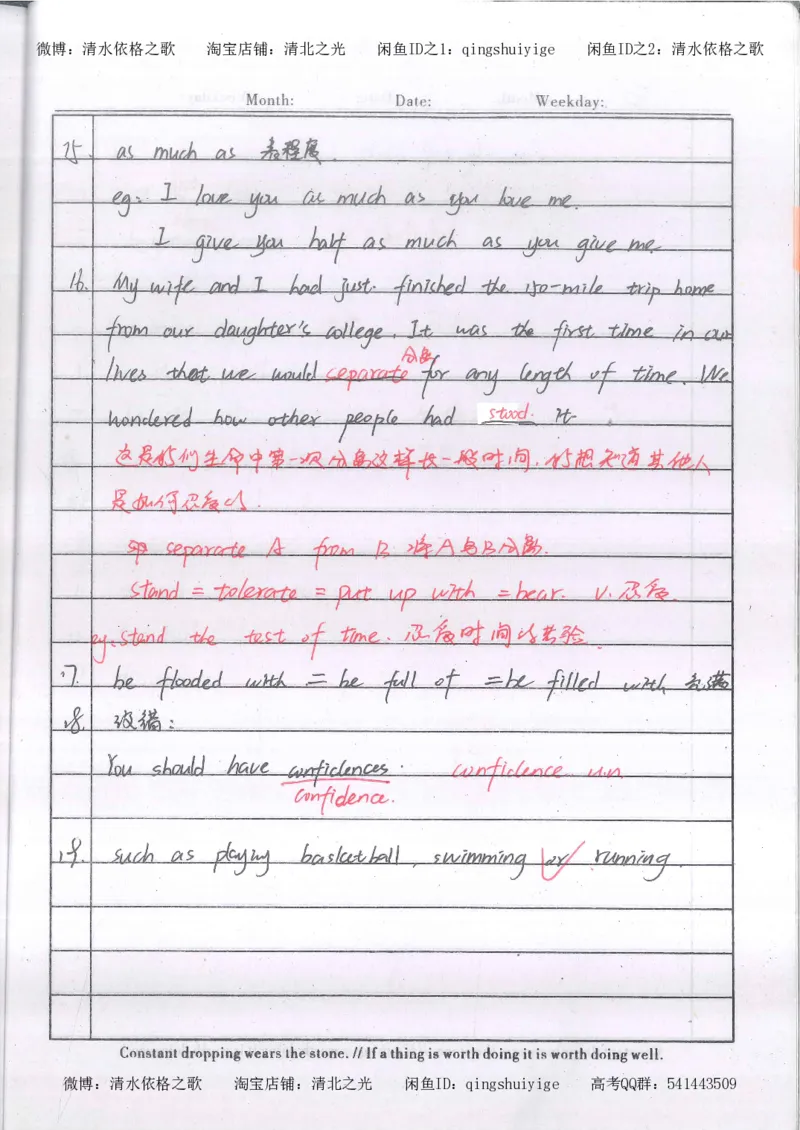 微博：清水依格之歌 淘宝店铺：清北之光 闲鱼ID之1：qingshuiyige 闲鱼ID之2：清水依格之歌
Month: Date: Weekday:
15. as much as 表程度.
eg: I love you as much as you love me.
I give you half as much as you give me.
16. My wife and I had just finished the 150-mile trip home
from our daughter's college. It was the first time in our
分离
lives that we would separate for any length of time. We
wondered how other people had stood it.
这是我们生命中第一次分离这样长一段时间, 我想知道其他人
是如何忍受的.
separate A from B 将A与B分离.
stand = tolerate = put up with = bear. v. 忍受
eg: stand the test of time. 忍受时间的考验.
17. be flooded with = be full of = be filled with 充满
18. 改错:
You should have confidences. confidence u.n
confidence.
19. such as playing basketball, swimming or running.
Constant dropping wears the stone. // If a thing is worth doing it is worth doing well.
微博：清水依格之歌 淘宝店铺：清北之光 闲鱼ID：qingshuiyige 高考QQ群：541443509